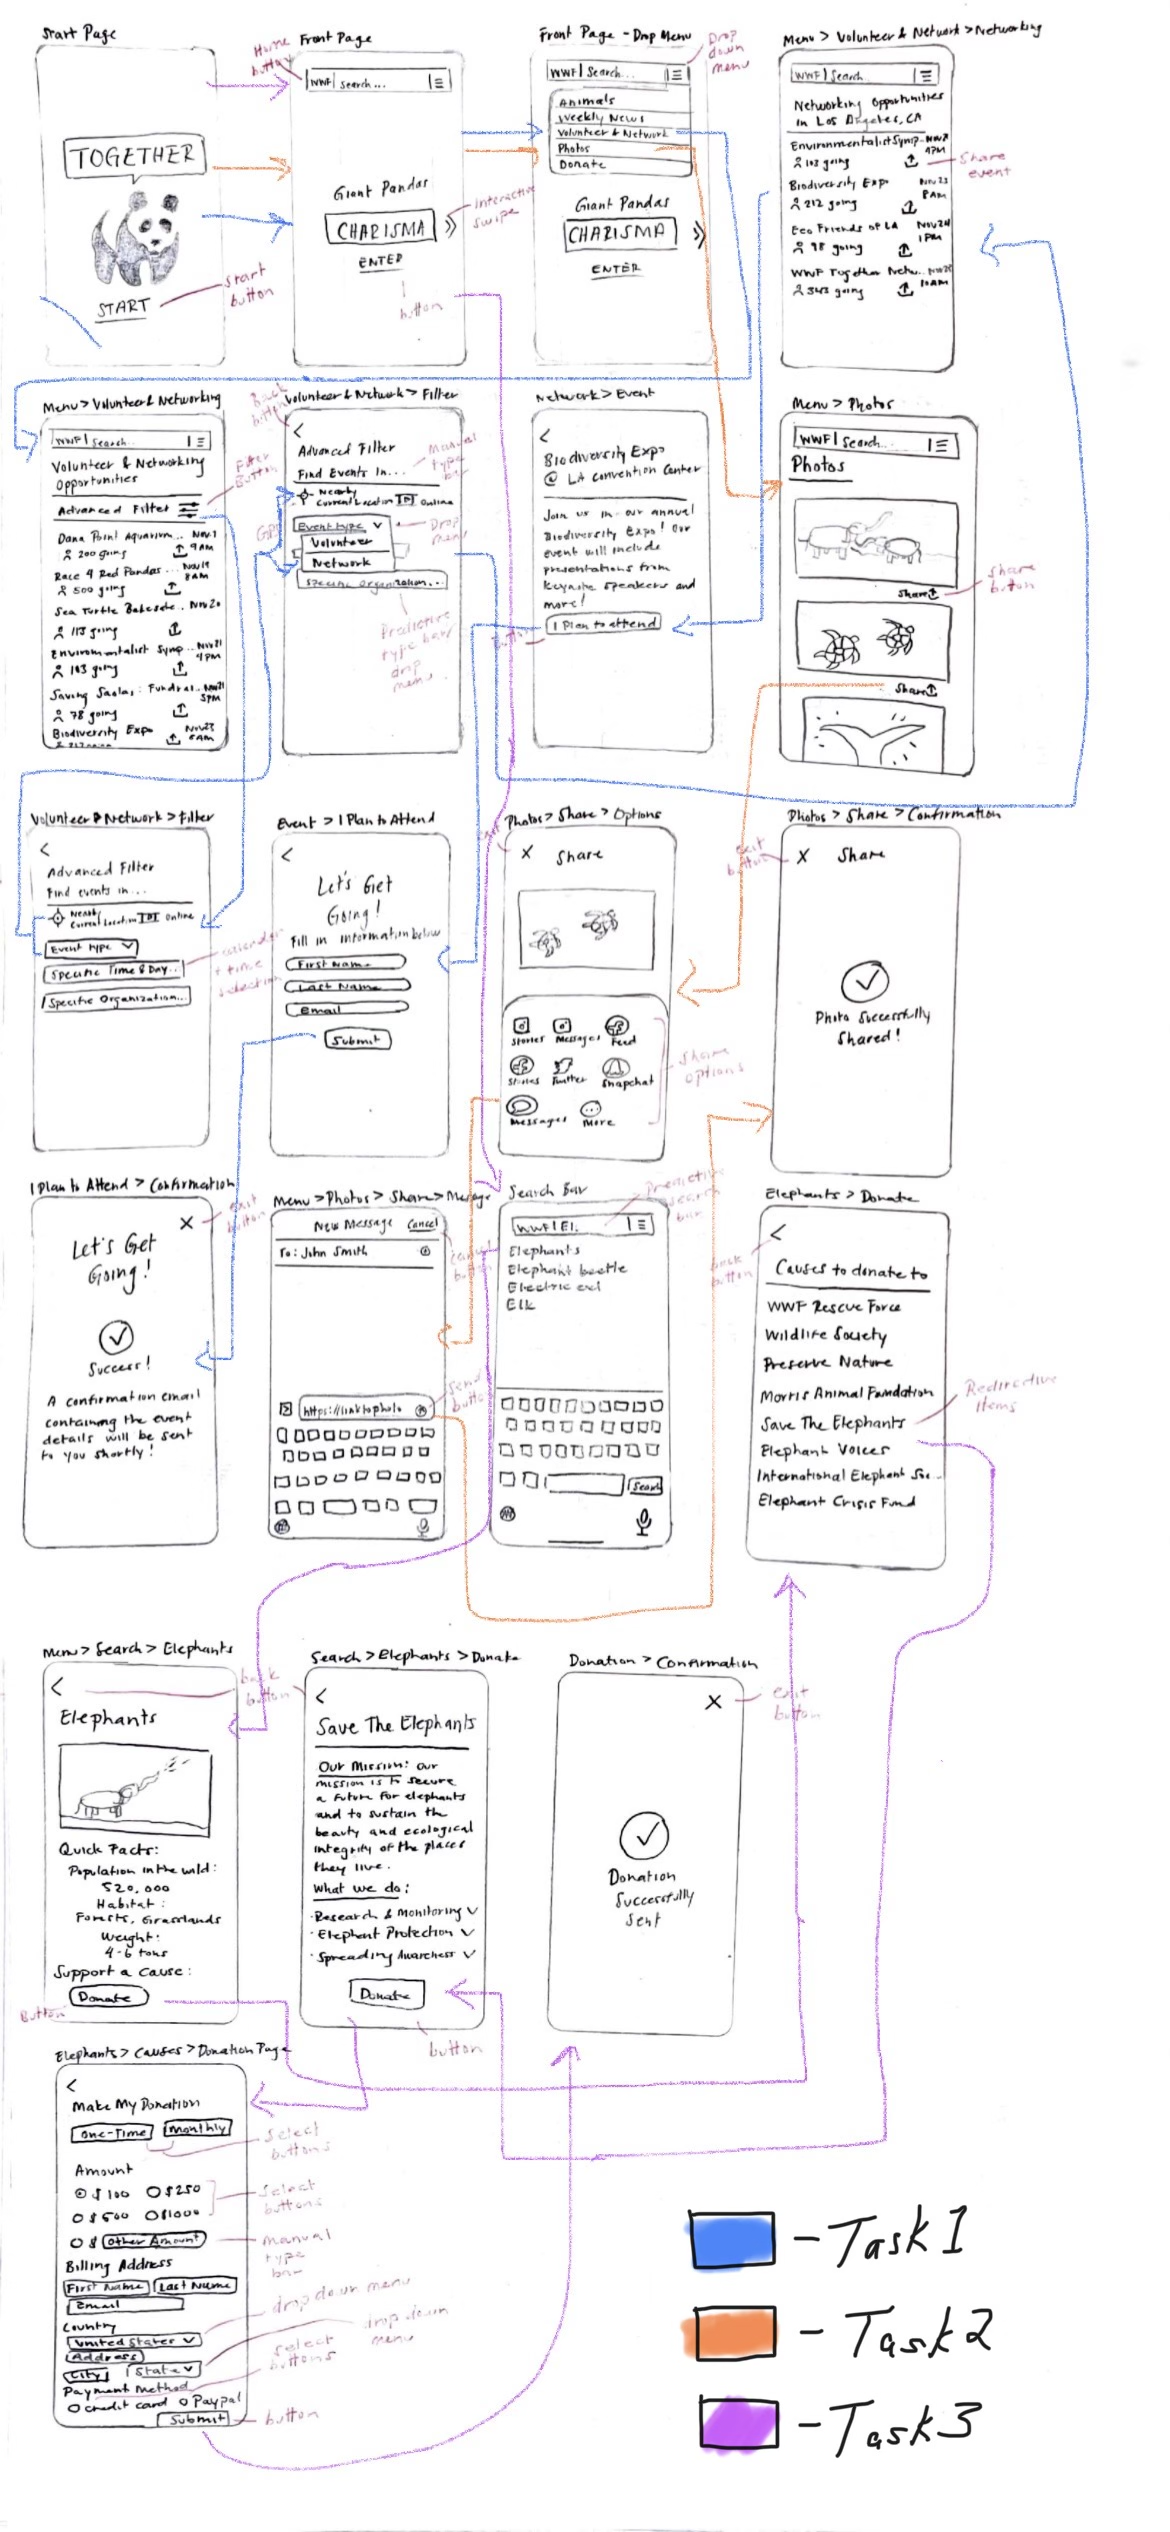 Start Page
TOGETHER
START
start button
Home button
Front Page
WWF | Search...
Giant Pandas
CHARISMA
ENTER
button
interactive swipe
Front Page - Drop Menu
Drop down menu
WWF | Search...
Animals
Weekly News
Volunteer & Network
Photos
Donate
Giant Pandas
CHARISMA
ENTER
Menu > Volunteer & Network > Networking
WWF | Search
Networking Opportunities
in Los Angeles, CA
Environmentalist Symp.. Nov 21
4PM
103 going
Share event
Biodiversity Expo Nov 23
8AM
212 going
Eco Friends of LA Nov 24
1PM
98 going
WWF Together Netw..
10AM
343 going
Menu > Volunteer & Networking
WWF | Search..
Volunteer & Networking
Opportunities
Advanced Filter
Filter Button
Dana Point Aquarium... Nov 1
9AM
200 going
Race 4 Red Pandas ... Nov 19
8AM
500 going
Sea Turtle Bakesale.. Nov 20
113 going
Environmentalist Symp... Nov 21
4PM
103 going
Saving Saolas: Fundrai.. Nov 21
5PM
78 going
Biodiversity Expo Nov 23
8AM
Back button
Volunteer & Network > Filter
<
Advanced Filter
Find Events In...
Manual type bar
Nearby
Current Location Online
GPS
Event type
Volunteer
Network
Drop menu
Specific Organization...
Predictive type bar / drop menu
Network > Event
<
Biodiversity Expo
@ LA convention Center
Join us in our annual
Biodiversity Expo! Our
event will include
presentations from
keynote speakers and
more!
I Plan to attend
Button
Menu > Photos
WWF | Search
Photos
Share
Share button
Share
Volunteer & Network > Filter
<
Advanced Filter
Find events in...
Nearby
Current Location Online
Event type
Specific Time & Day..
Specific Organization...
calendar + time selection
Event > I Plan to Attend
<
Let's Get
Going!
Fill in information below
First Name
Last Name
Email
Submit
Photos > Share > Options
X Share
Stories Messages Feed
Stories Twitter Snapchat
Messages More
Share options
Photos > Share > Confirmation
exit button
X Share
Photo Successfully
Shared!
I Plan to Attend > Confirmation
X
exit button
Let's Get
Going!
Success!
A confirmation email
containing the event
details will be sent
to you shortly!
Menu > Photos > Share > Message
New Message Cancel
cancel button
To: John Smith
https://linktophoto
Send button
Search Bar
Predictive search bar
WWF | El
Elephants
Elephant beetle
Electric eel
Elk
Search
Elephants > Donate
<
back button
Causes to donate to
WWF Rescue Force
Wildlife Society
Preserve Nature
Morris Animal Foundation
Save The Elephants
Redirective items
Elephant Voices
International Elephant Soc..
Elephant Crisis Fund
Menu > Search > Elephants
<
back button
Elephants
Quick Facts:
Population in the wild:
520,000
Habitat:
Forests, Grasslands
Weight:
4-6 tons
Support a Cause:
Donate
Button
Search > Elephants > Donate
<
Save The Elephants
Our Mission: our
mission is to secure
a future for elephants
and to sustain the
beauty and ecological
integrity of the places
they live.
What we do:
· Research & Monitoring
· Elephant Protection
· Spreading Awareness
Donate
button
Donation > Confirmation
X
exit button
Donation
Successfully
Sent
Elephants > Causes > Donation Page
<
Make My Donation
One-Time Monthly
select buttons
Amount
$100 $250
$500 $1000
select buttons
$ Other Amount
manual type bar
Billing Address
First Name Last Name
Email
Country
United States
drop down menu
Address
City State
drop down menu
Payment Method
select buttons
Credit card Paypal
Submit
button
- Task 1
- Task 2
- Task 3